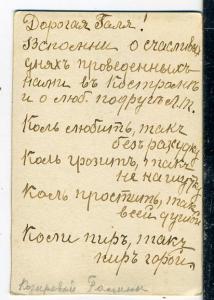 Дорогая Галя!
Вспомни о счастливых
дняхъ проведенныхъ
нами въ Костромѣ
и о люб. подругѣ
Коль любить, такъ
безъ разсудку
Коль грозить, такъ
не на шутку
Коль простить, так
всей душой
Коли пиръ, такъ
пиръ горой.